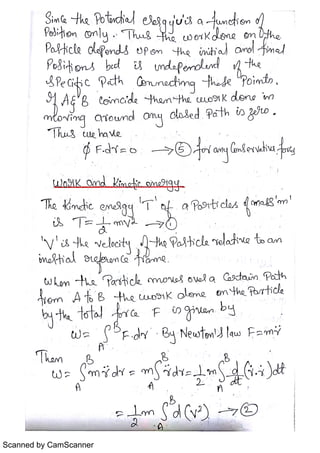 Since the Potential energy 'V' is a function of
Position only. Thus the work done on the
Particle depends upon the initial and final
Positions but is independent of the
Specific Path Connecting these Points.
If A & B coincide then the work done in
moving around any closed Path is zero.
Thus we have
∮ F.dr = 0 → ⑤ for any Conservative force
Work and kinetic energy
The kinetic energy 'T' of a Particles of mass 'm'
is T = 1/2 mv² → ①
'V' is the velocity of the Particle relative to an
inertial reference frame.
When the Particle moves over a Certain Path
from A to B the work done on the Particle
by the total force F is given by
W = ∫_A^B F.dr. By Newton's law F = mr̈
Then
W = ∫_A^B m r̈ dr = m ∫_A^B r̈ dr = 1/2 m ∫_A^B d/dt (ṙ.ṙ) dt
= 1/2 m ∫_A^B d(v²) → ②
Scanned by CamScanner